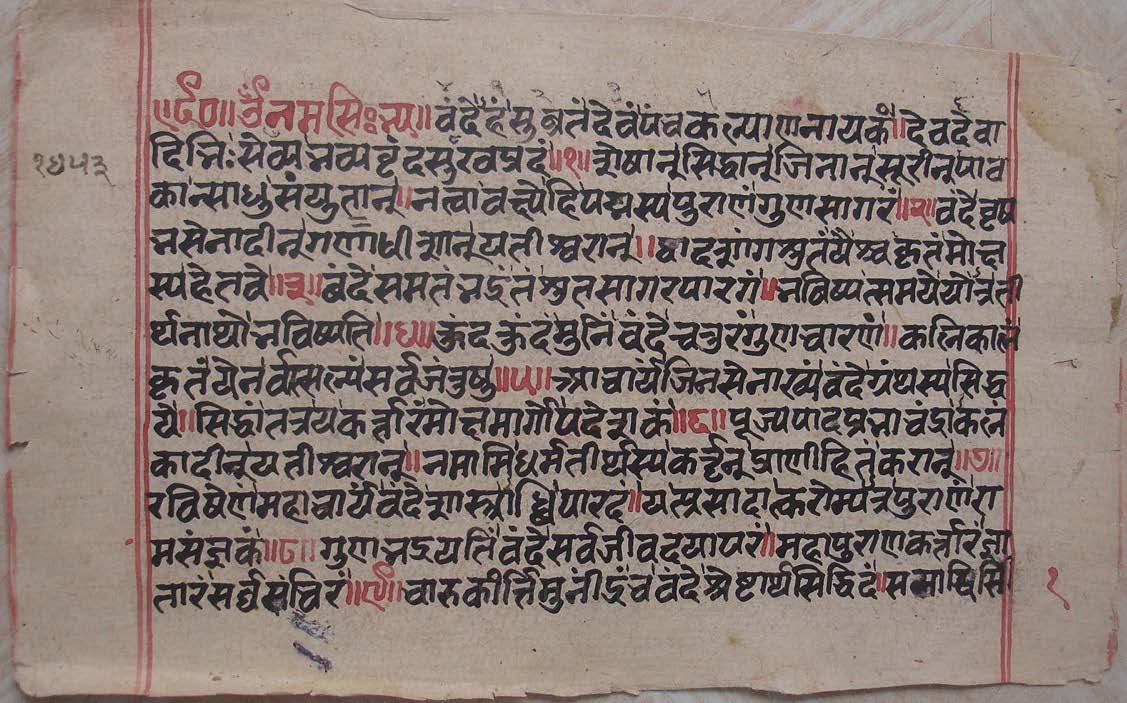 ॥ए६०॥ॐनमःसिद्धेभ्यः॥ वंदेहंसुव्रतंदेवंपंचकल्याणनायकं॥देवदेवा
१७५३
दिभिःसेव्यंभव्यवृंदसुखप्रदं॥१॥शेषान्सिद्धान्जिनान्सूरीन्पाठ
कान्साधुसंयुतान्॥नत्वावक्ष्येहिपद्मस्यपुराणंगुणसागरं॥२॥वंदेवृष
भसेनादीन्गणाधीशान्यतीश्वरान्॥द्वादशांगश्रुतंयैश्चकृतंमोक्ष
स्यहेतवे॥३॥वंदेसमतंभद्रंतंश्रुतसागरपारगं॥भविष्यत्समयेयोत्रती
र्थनाथोभविष्यति॥४॥कुंदकुंदमुनिंवंदेचतुरंगुणचारणं॥कलिकाले
कृतंयेनवात्सल्यंसर्वजंतुषु॥५॥आचार्यंजिनसेनाख्यंवंदेग्रंथस्यसिद्ध
ये॥सिद्धांतत्रयकर्त्तारंमोक्षमार्गोपदेशकं॥६॥पूज्यपादप्रभाचंद्राकलं
कादीन्यतीश्वरान्॥नमामिधर्मतीर्थस्यकर्तृन्प्राणीहितंकरान्॥७॥
रविषेणंमहाचार्यंवंदेशास्त्राब्धिपारदं॥यत्प्रसादात्करोम्यत्रपुराणंरा
मसंज्ञकं॥८॥गुणभद्रयतिंवंदेसर्वजीवदयापरं॥महापुराणकर्त्तारंज्ञा
तारंसर्वसंविरं॥९॥चारुकीर्त्तिमुनींद्रंचवंदेअष्टार्थसिद्धिदं॥
१